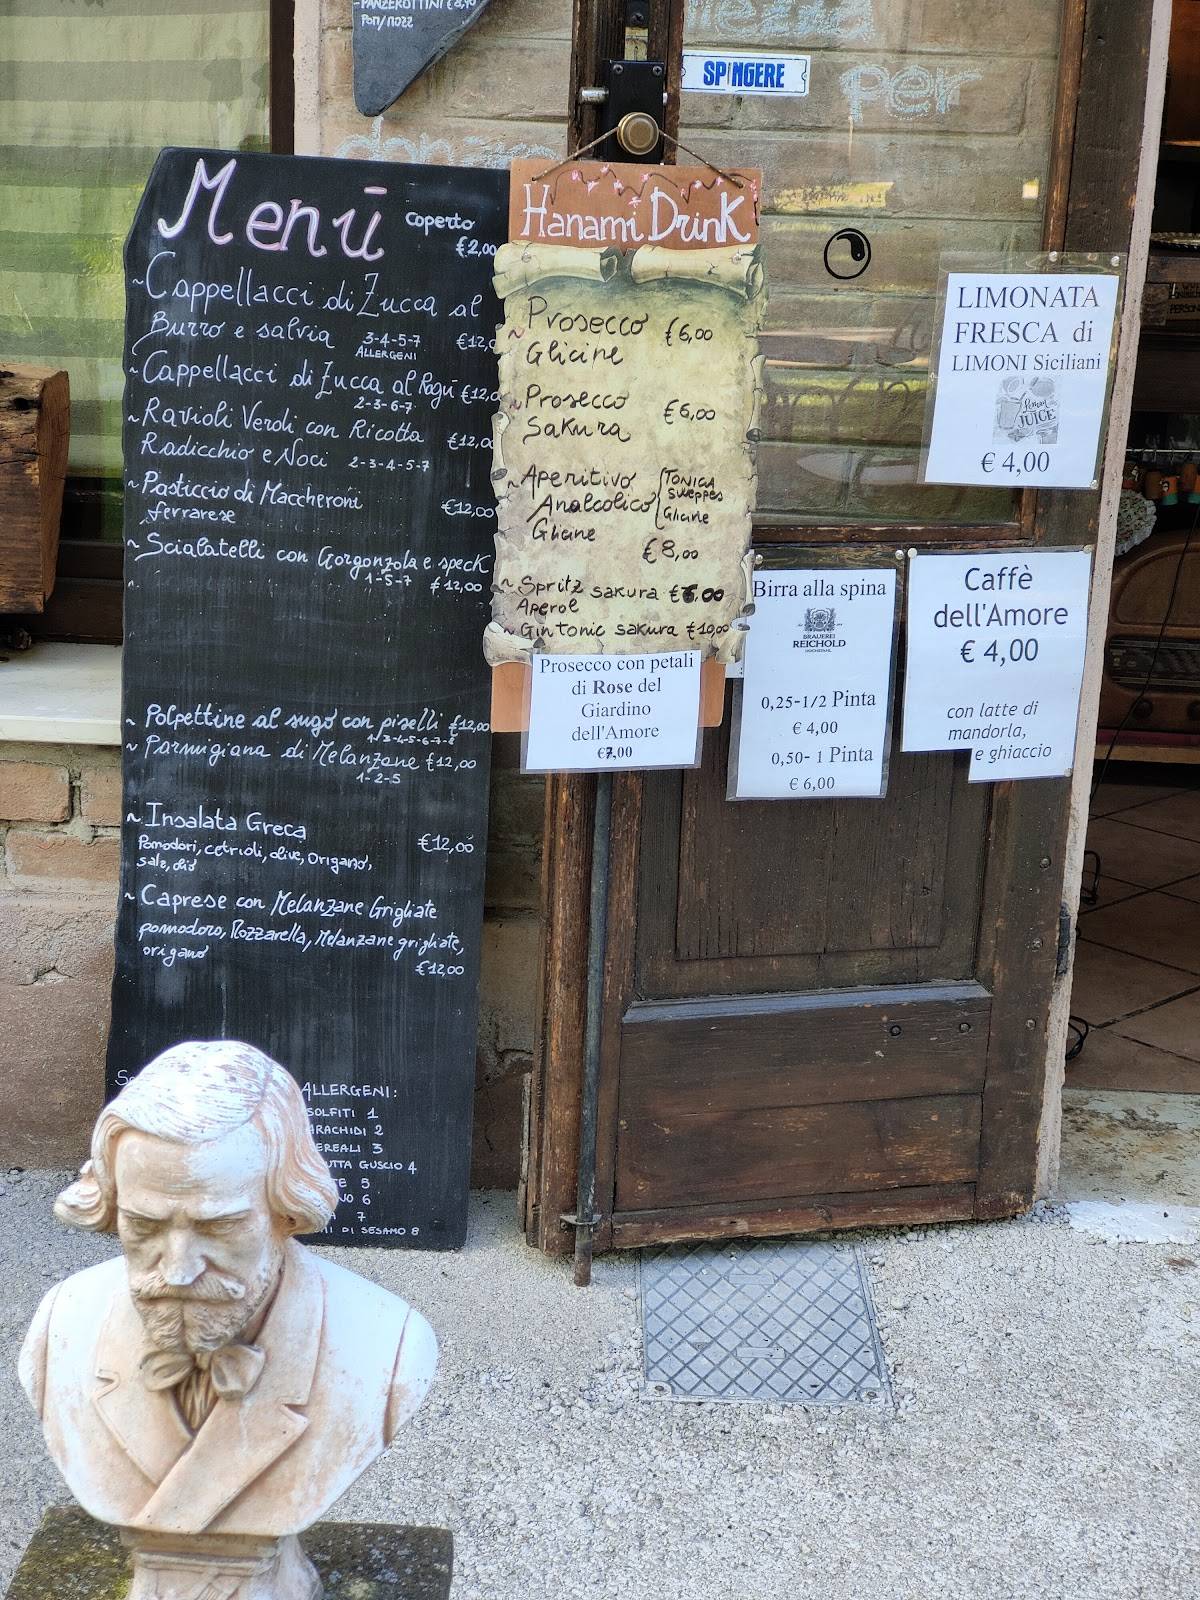 PANZEROTTINI
Pom/mozz
SPINGERE
per
Menù
Coperto
€2,00
~Cappellacci di Zucca al
Burro e salvia 3-4-5-7
ALLERGENI
~Cappellacci di Zucca al Ragù €12,0
2-3-6-7
~Ravioli Verdi con Ricotta €12,0
Radicchio e Noci 2-3-4-5-7
~Pasticcio di Maccheroni €12,00
ferrarese
~Scialatelli con Gorgonzola e speck
1-5-7 €12,00
~Polpettine al sugo con piselli €12,00
~Parmigiana di Melanzane €12,00
1-2-5
~Insalata Greca €12,00
Pomodori, cetrioli, olive, Origano,
sale, olio
~Caprese con Melanzane Grigliate
pomodoro, Mozzarella, Melanzane grigliate,
origano
€12,00
ALLERGENI:
SOLFITI 1
ARACHIDI 2
EREALI 3
UTTA GUSCIO 4
TE 5
NO 6
7
MI DI SESAMO 8
Hanami Drink
~Prosecco €6,00
Glicine
~Prosecco €6,00
Sakura
~Aperitivo Tonica
Analcolico Sweppes
Glicine Glicine
€8,00
~Spritz sakura
Aperol
~Gin Tonic sakura €10,00
Prosecco con petali
di Rose del
Giardino
dell'Amore
€7,00
Birra alla spina
BRAUEREI
REICHOLD
0,25-1/2 Pinta
€ 4,00
0,50- 1 Pinta
€ 6,00
LIMONATA
FRESCA di
LIMONI Siciliani
Lemon
JUICE
€ 4,00
Caffè
dell'Amore
€ 4,00
con latte di
mandorla,
e ghiaccio